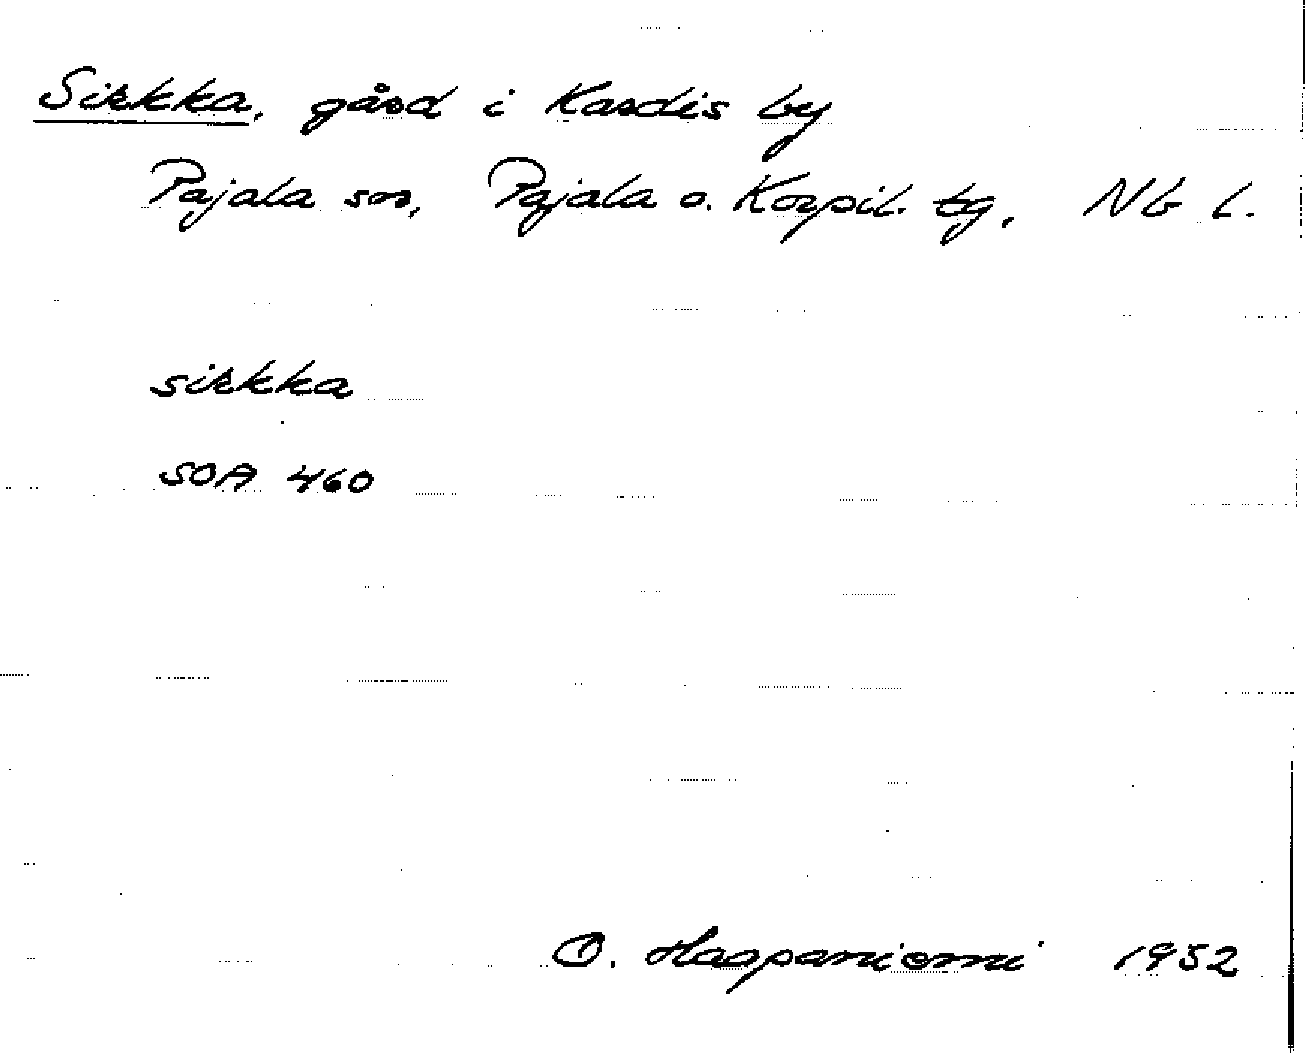 Sirkka, gård i Kardis by
Pajala sn, Pajala o. Korpil. tg, Nb l.
sirkka
SOA 460
O. Haapaniemi 1952